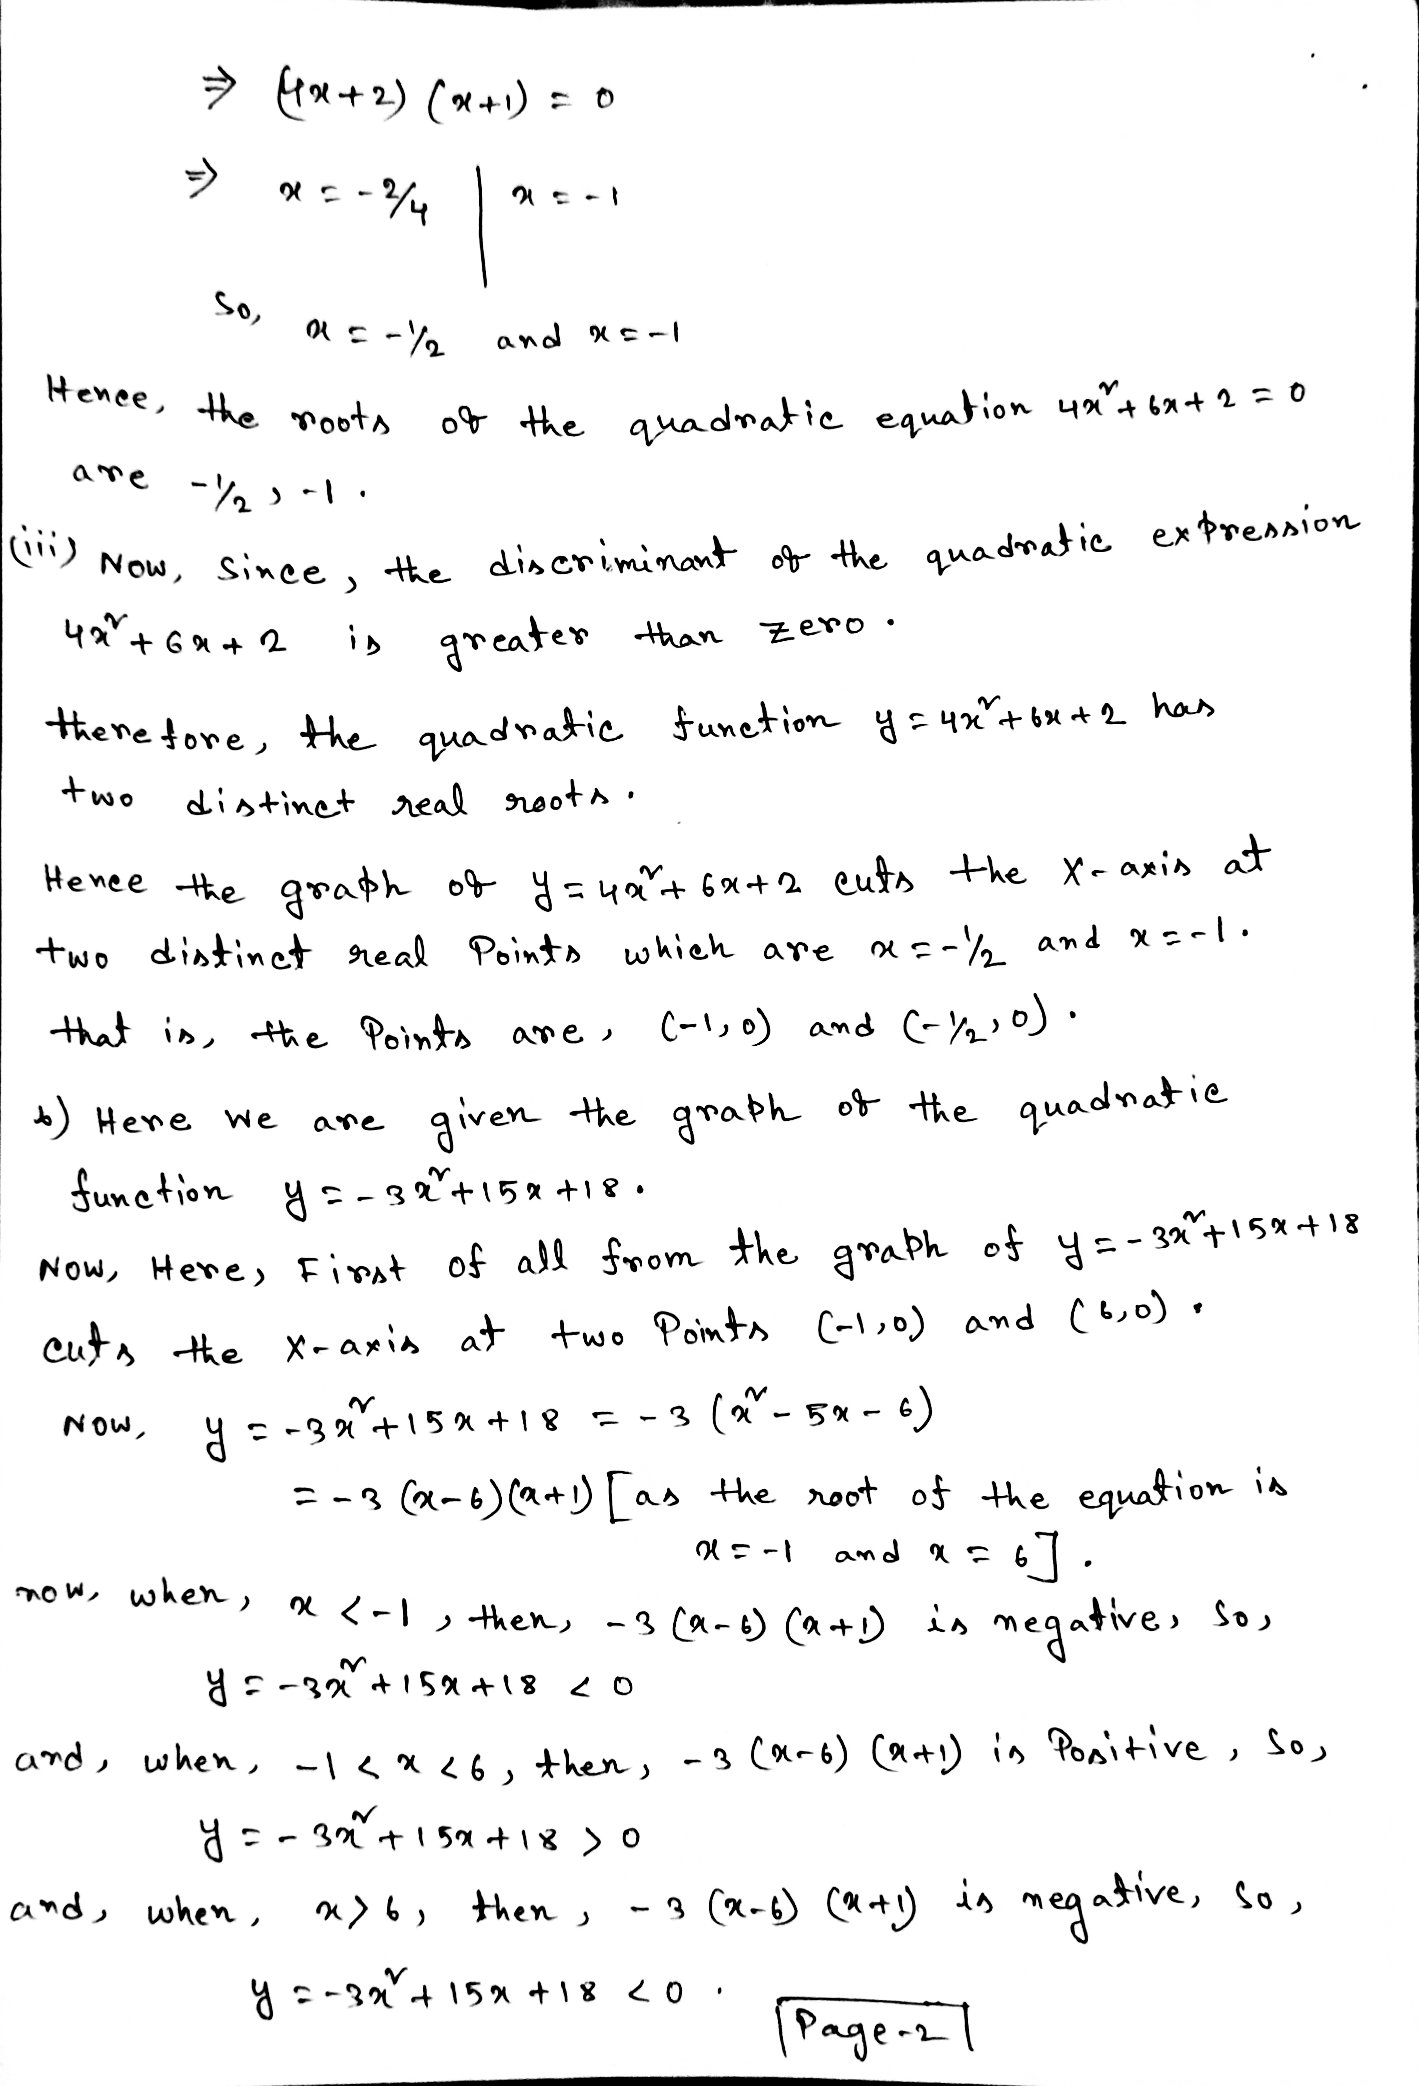 ⇒ (4x+2) (x+1) = 0
⇒ x = -2/4 | x = -1
So, x = -1/2 and x = -1
Hence, the roots of the quadratic equation 4x²+6x+2 = 0
are -1/2, -1.
(iii) Now, Since, the discriminant of the quadratic expression
4x²+6x+2 is greater than zero.
therefore, the quadratic function y = 4x²+6x+2 has
two distinct real roots.
Hence the graph of y = 4x²+6x+2 cuts the X-axis at
two distinct real Points which are x = -1/2 and x = -1.
that is, the Points are, (-1,0) and (-1/2,0).
b) Here we are given the graph of the quadratic
function y = -3x²+15x+18.
Now, Here, First of all from the graph of y = -3x²+15x+18
cuts the X-axis at two Points (-1,0) and (6,0).
Now, y = -3x²+15x+18 = -3 (x²-5x-6)
= -3 (x-6)(x+1) [as the root of the equation is
x = -1 and x = 6].
now, when, x < -1, then, -3 (x-6) (x+1) is negative, so,
y = -3x²+15x+18 < 0
and, when, -1 < x < 6, then, -3 (x-6) (x+1) is Positive, so,
y = -3x²+15x+18 > 0
and, when, x > 6, then, -3 (x-6) (x+1) is negative, so,
y = -3x²+15x+18 < 0.
Page-2